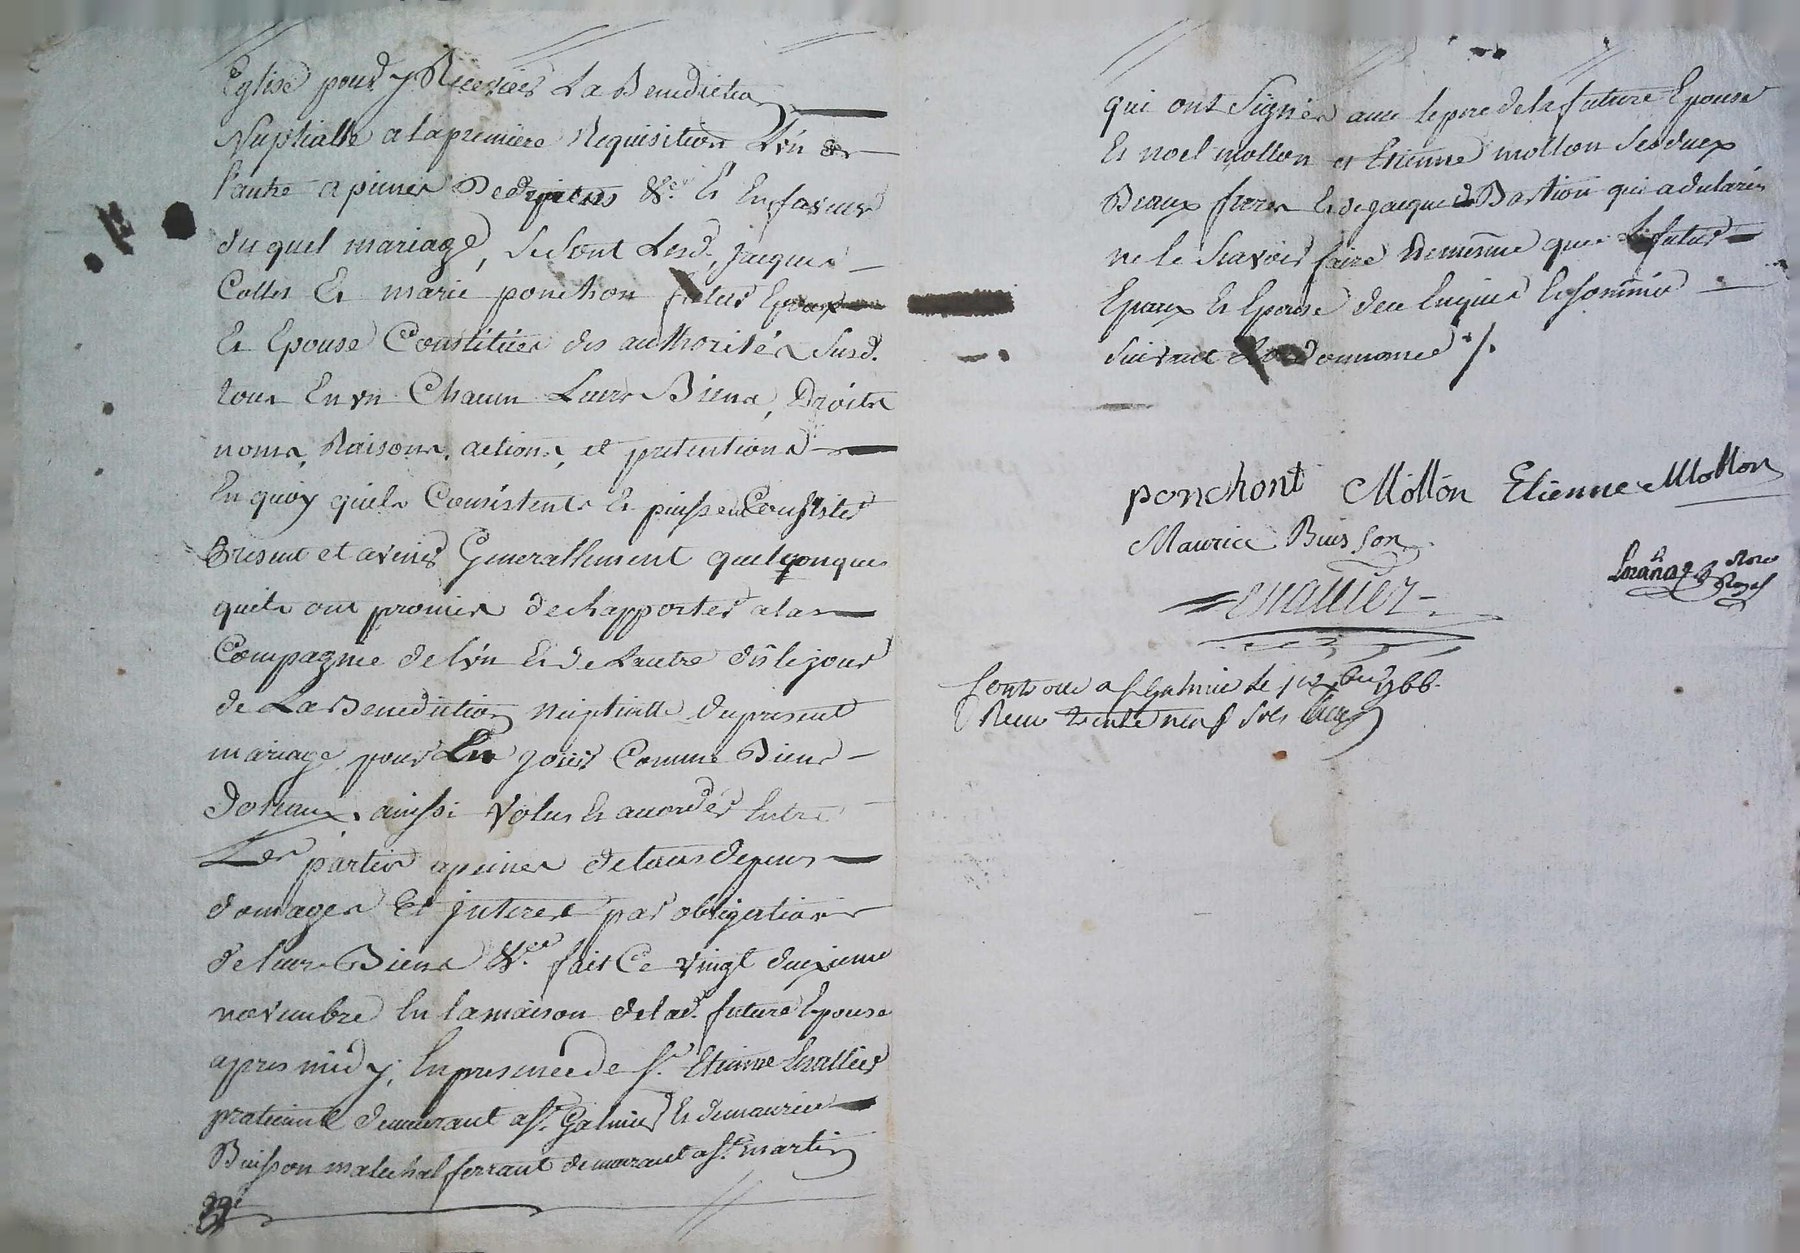 Eglise pour y Recevoir La Benediction
Nuptialle a la premiere Requisition L'un de
l'autre a peines De depens &c. Et En faveur
du quel mariage, se sont Lesd. Jacques
Colles Et marie ponchon futur Epoux
Et Epouse Constitués des authorités susd.
tous En un Chacun Leurs Biens, Droits
noms, Raisons, actions, et pretentions
En quoy quils Consistent Et puissent Consister
Present et avenir Generallement quelqonques
quils ont promis de Rapporter a la
Compagnie de l'un Et de Lautre dis le jour
de La Benediction nuptialle du present
mariage pour En jouir Comme Biens
Dotaux. ainssi Voulus Et accordés Entre
Les parties a peines de tous depens
domages Et Interest par obligation
de leurs Biens &c. fait Ce vingt deuxieme
novembre En la maison de lad. future Epouse
apres midy, En presence de Sr. Etienne
praticient demeurant a St. Galmier Et de maurice
Buisson marechal ferrant demeurant a St. martin
qui ont Signés avec le pere de la future Epouse
Et noel mollon et Etienne mollon ses deux
Beaux freres Et de jacques Bastion qui a declarés
ne le Scavoir faire De mesme que Le futur
Epoux Et Epouse de ce Enquis Et sommés
Suivant L'ordonnance ./.
ponchont Mollon Etienne Mollon
Maurice Buisson
Controllé a St Galmier le 1766.
Recu trente neuf sols